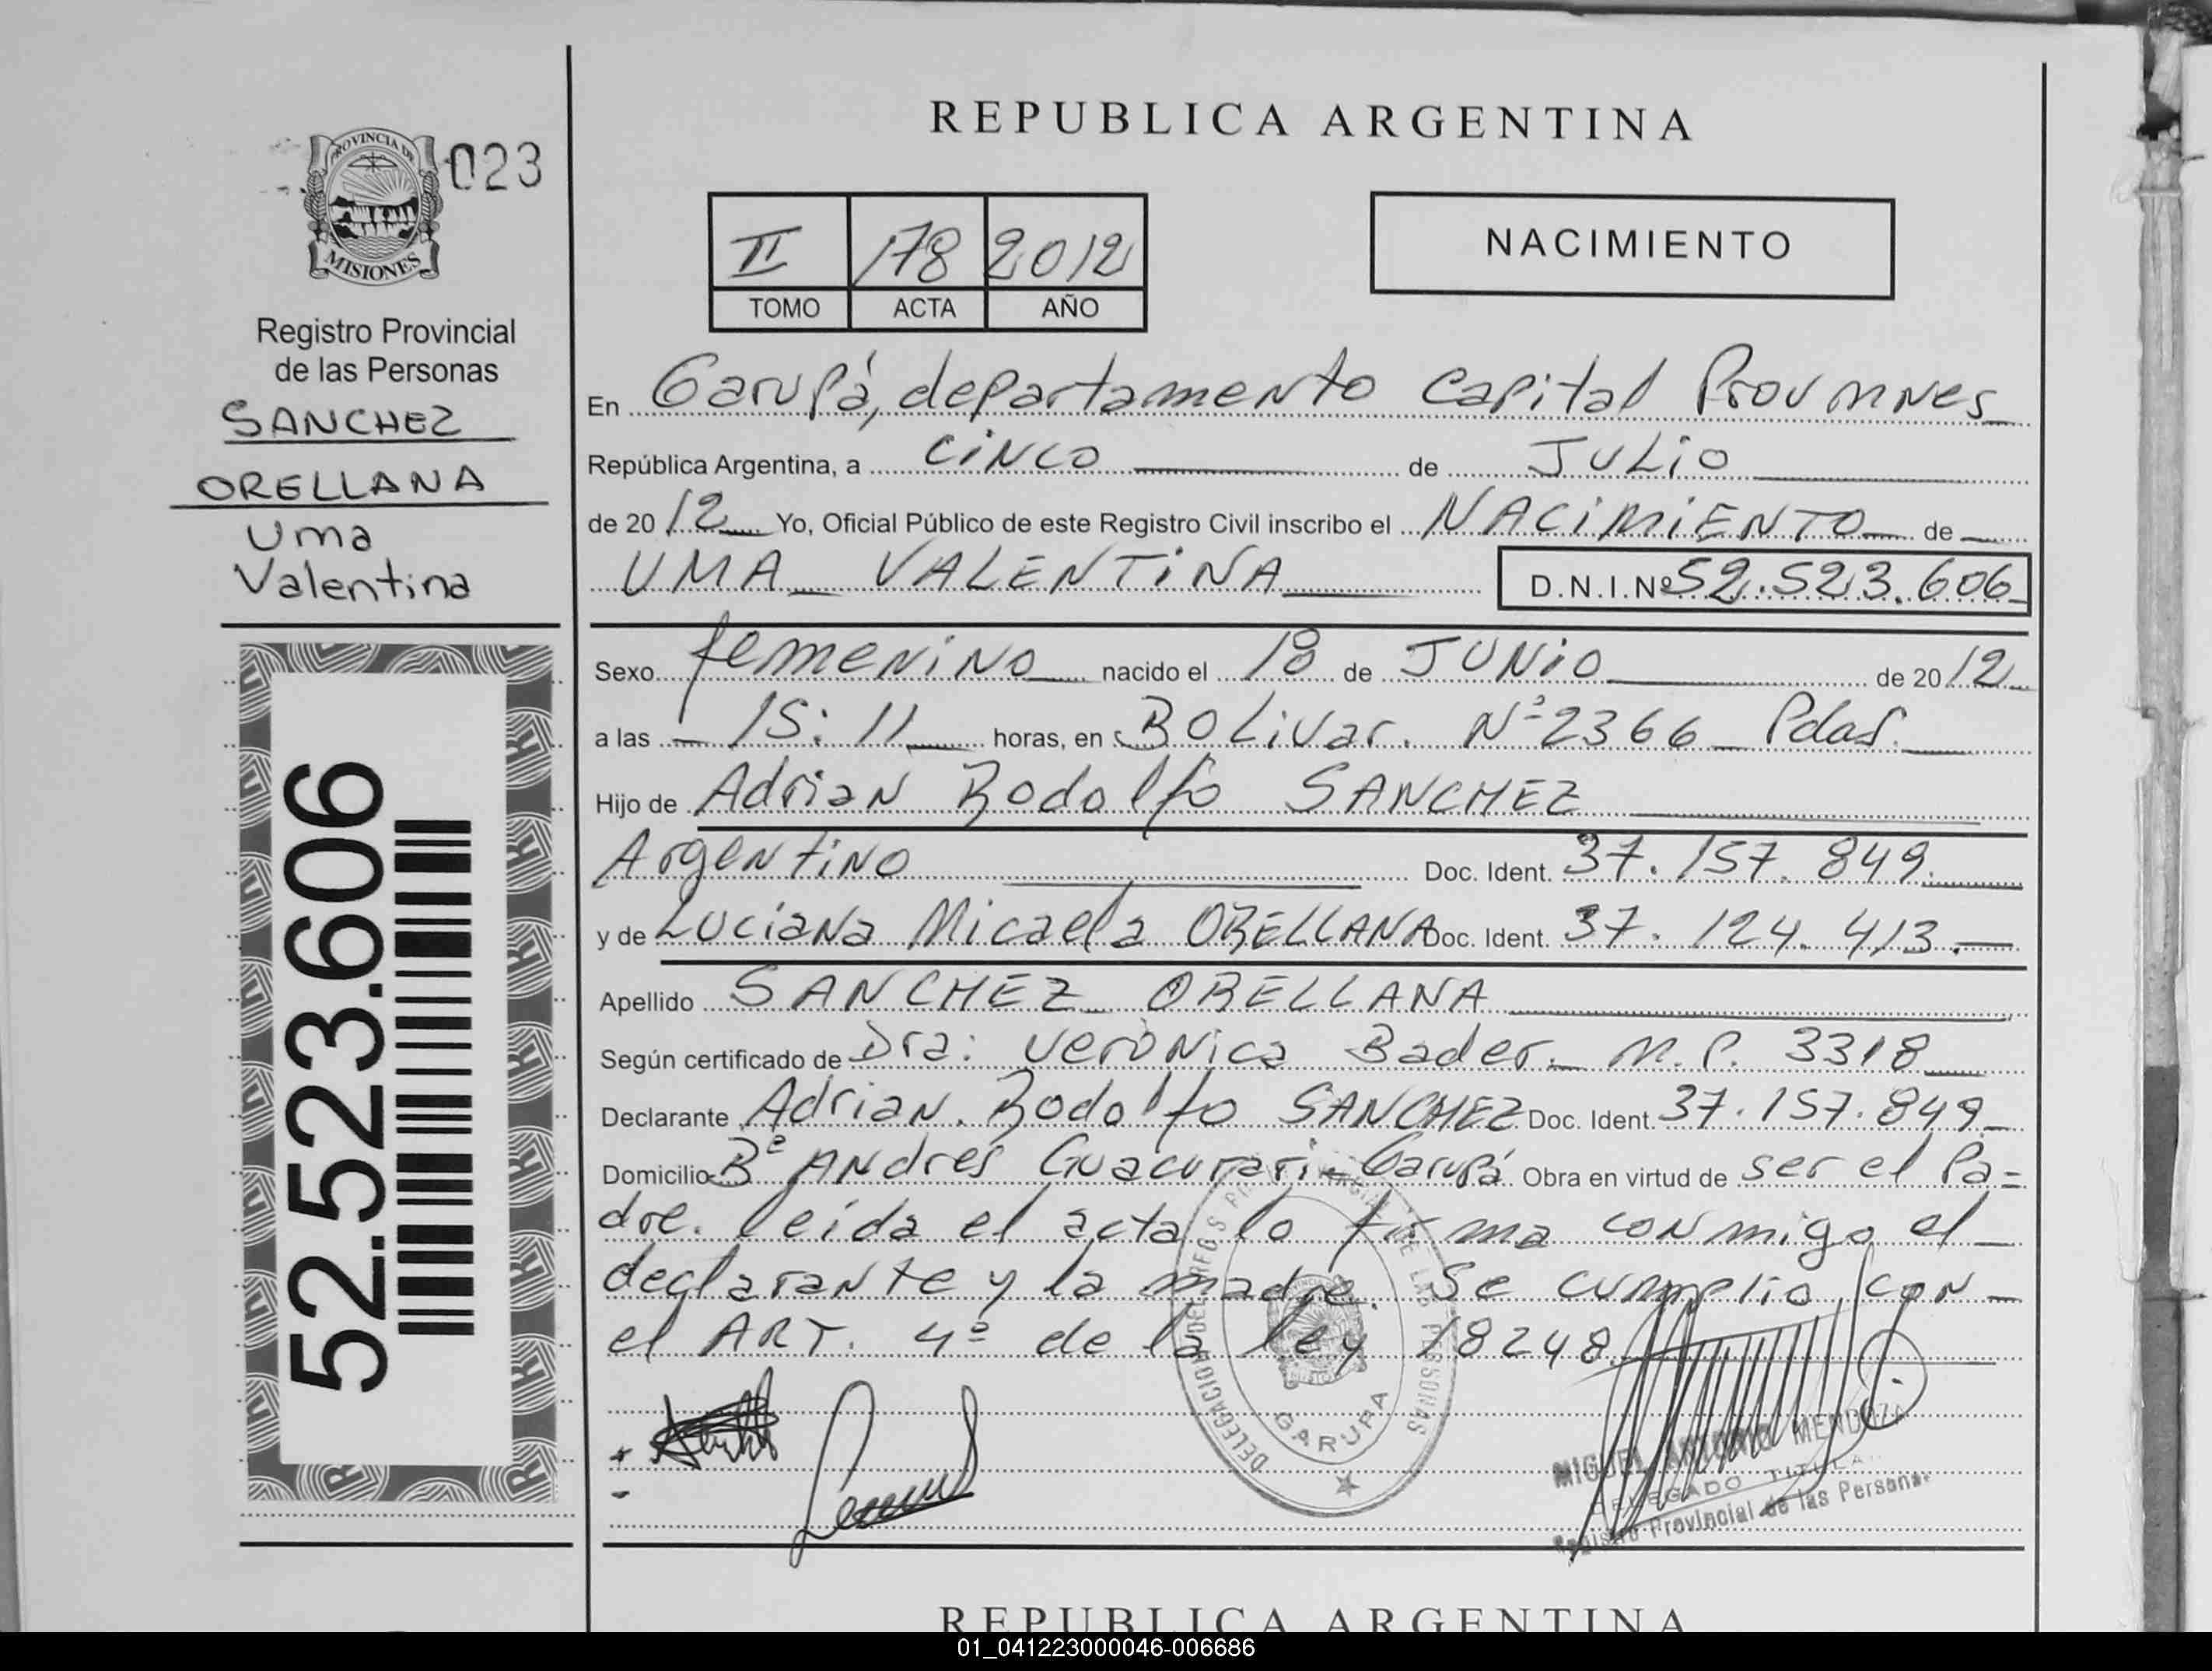 REPUBLICA ARGENTINA
PROVINCIA DE
MISIONES
023
Registro Provincial
de las Personas
SANCHEZ
ORELLANA
Uma
Valentina
52.523.606
II 178 2012
TOMO ACTA AÑO
NACIMIENTO
En Garupá, departamento Capital Prov mnes
República Argentina, a CINCO de JULIO
de 2012 Yo, Oficial Público de este Registro Civil inscribo el NACIMIENTO de
UMA VALENTINA D.N.I.Nº 52.523.606
Sexo femenino nacido el 18 de JUNIO de 2012
a las 15:11 horas, en Bolivar. Nº 2366 Pdas.
Hijo de Adrian Rodolfo SANCHEZ
Argentino Doc. Ident. 37.157.849.
y de Luciana Micaela ORELLANA Doc. Ident. 37.124.413.
Apellido SANCHEZ ORELLANA
Según certificado de Dra: Verònica Bader. M.P. 3318
Declarante Adrian. Rodolfo SANCHEZ Doc. Ident. 37.157.849
Domicilio Bº Andres Guacurari-Garupá Obra en virtud de ser el Pa=
dre. leida el acta lo firma conmigo el
declarante y la madre. Se cumplio con
el ART. 4º de la ley 18248.
GARUPA
MIGUEL ANTONIO MENDOZA
DELEGADO TITULAR
Registro Provincial de las Personas
REPUBLICA ARGENTINA
01_041223000046-006686